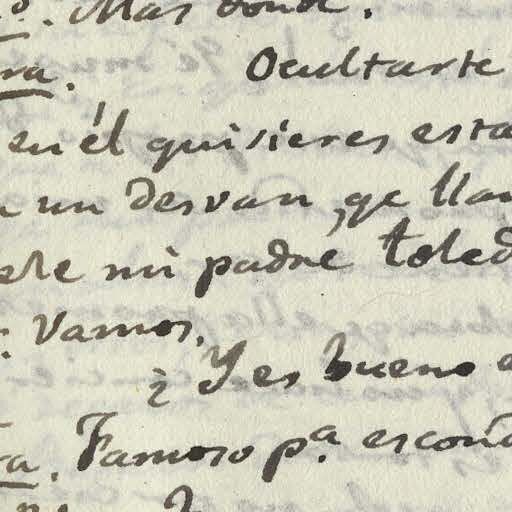 Mas dond.
ra. Ocultarte
en él quisieres esta
un desvan, qe llam
este mi padre toled
Vamos.
¿Y es bueno e
ra. Famoso pa. escond